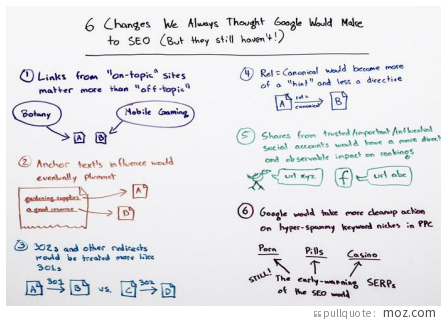 6 Changes We Always Thought Google Would Make
to SEO (But they still haven't!)
1 Links from "on-topic" sites
matter more than "off-topic"
Botany
Mobile Gaming
A B
2 Anchor text's influence would
eventually plummet
gardening supplies
a good resource
A
D
3 302s and other redirects
would be treated more like
301s
A 302 B vs. C 302 D
4 Rel=Canonical would become more
of a "hint" and less a directive
A rel= canonical B
5 Shares from trusted/important/influential
social accounts would have a more direct
and observable impact on rankings
url xyz
f
url abc
6 Google would take more cleanup action
on hyper-spammy keyword niches in PPC
Porn Pills Casino
STILL! The early-warning SERPs
of the SEO world
pullquote: moz.com